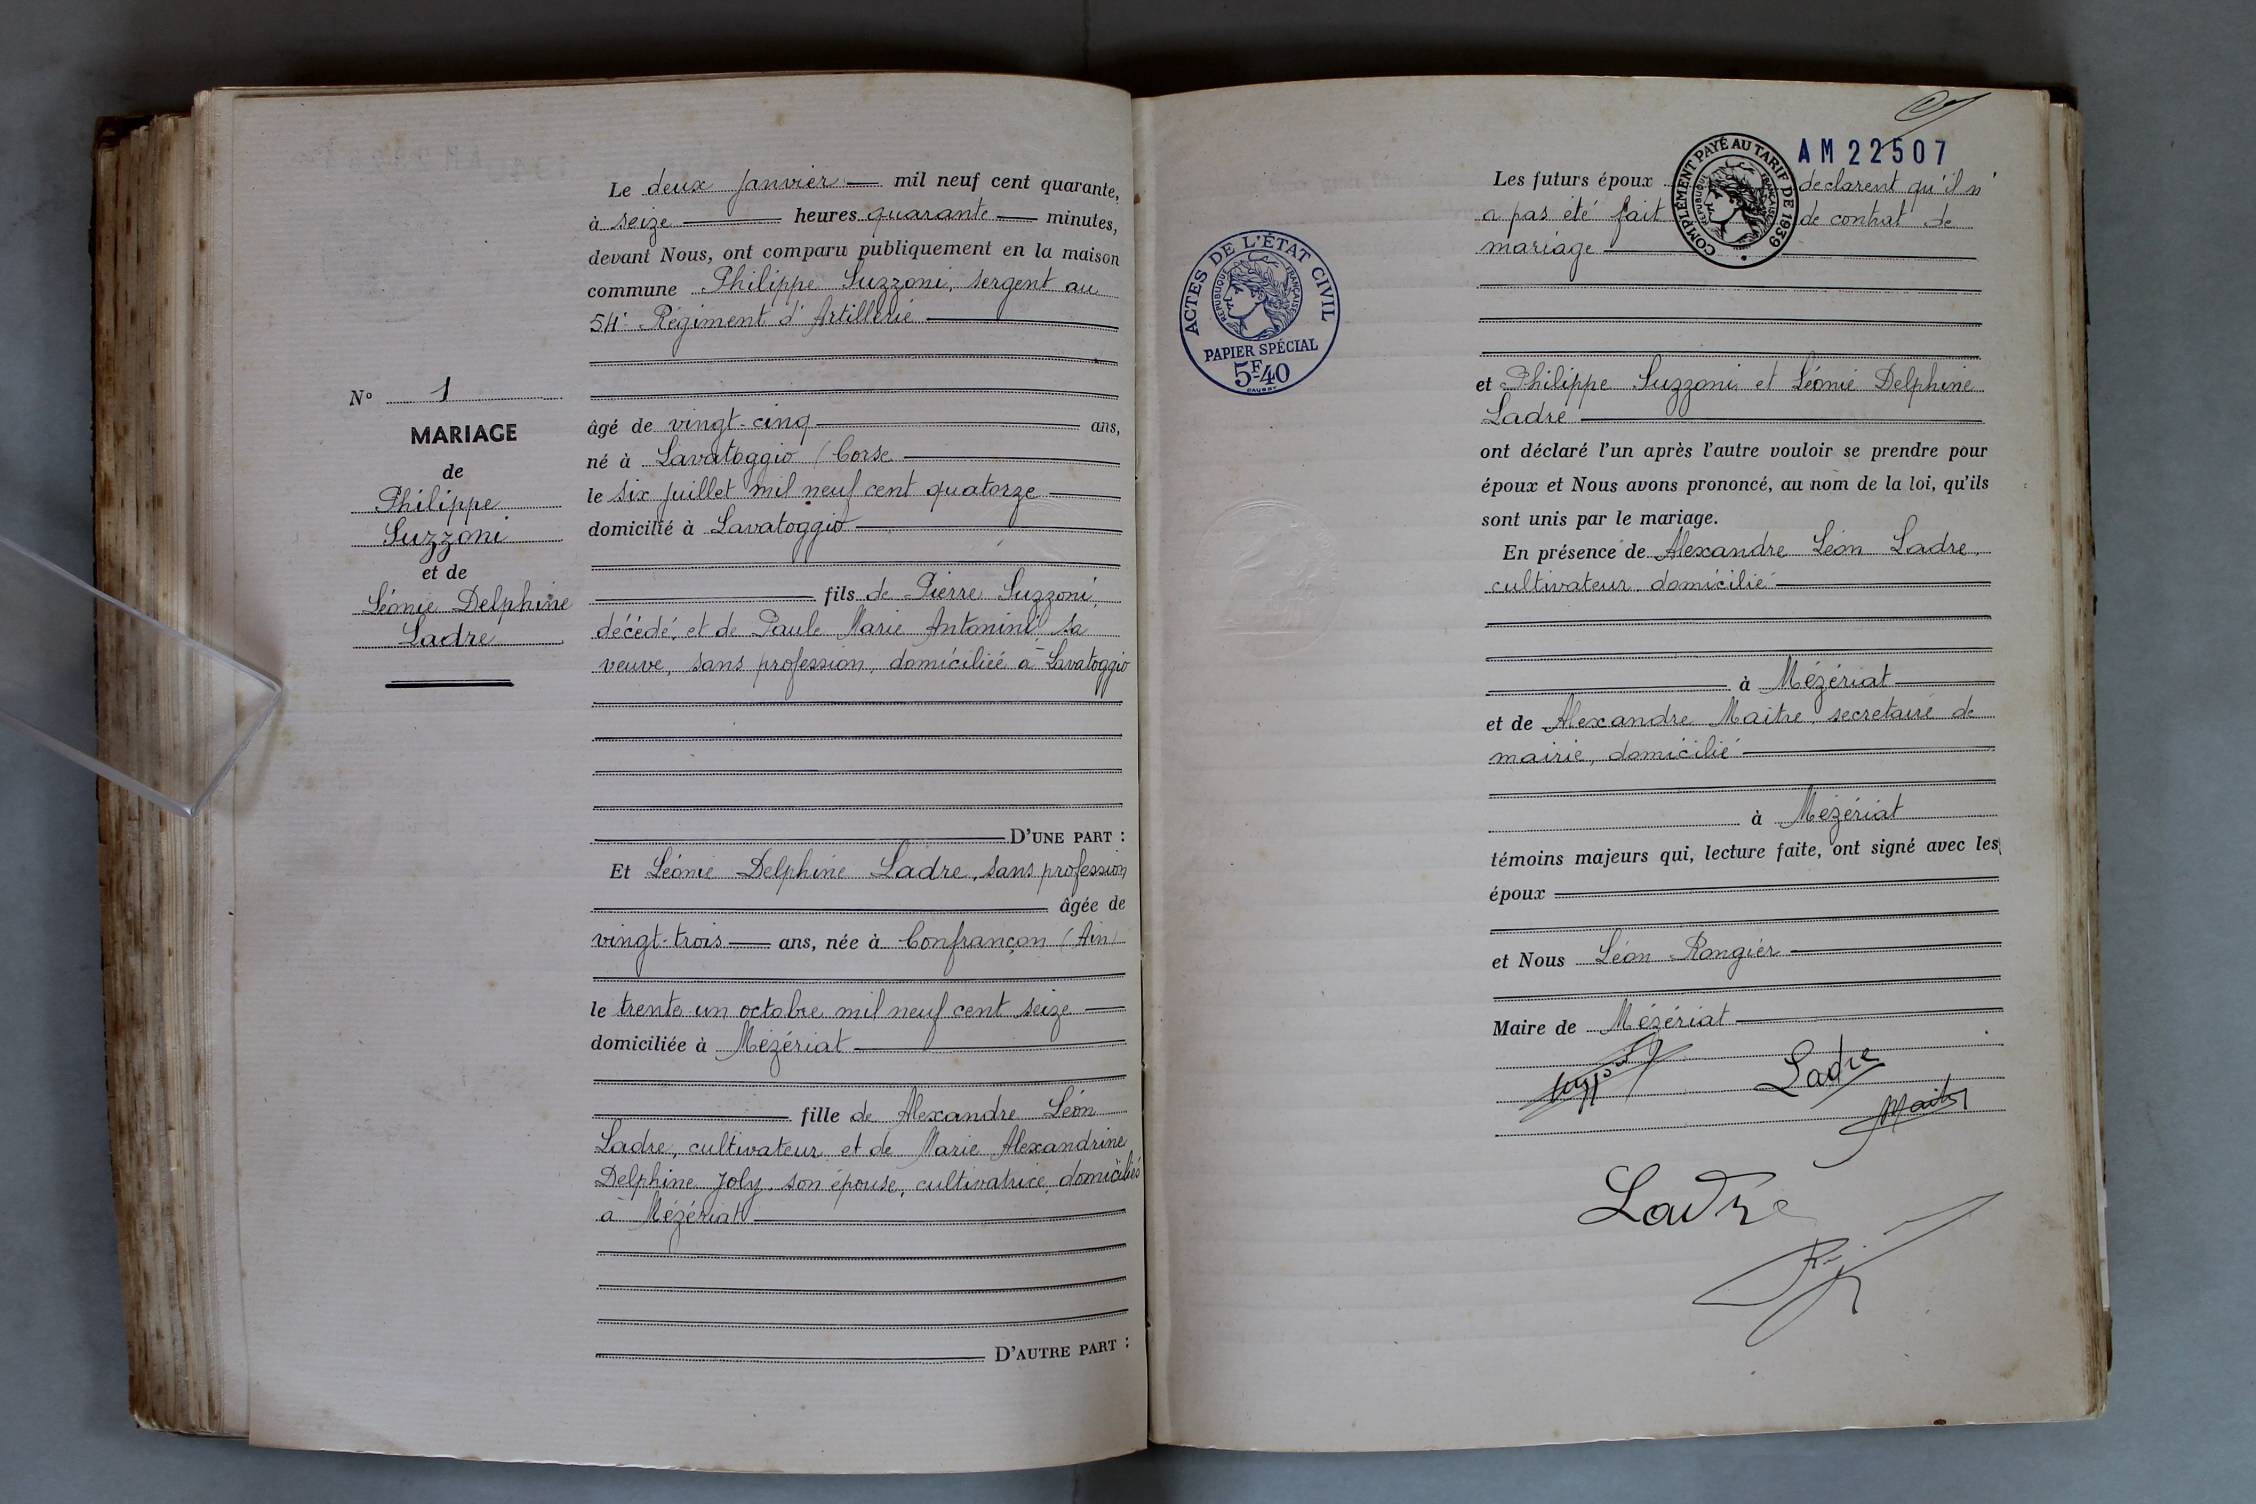 N° 1
MARIAGE
de
Philippe
Suzzoni
et de
Léonie Delphine
Ladre
Le deux janvier mil neuf cent quarante,
à seize heures quarante minutes,
devant Nous, ont comparu publiquement en la maison
commune Philippe Suzzoni, sergent au
54e Régiment d'Artillerie
âgé de vingt-cinq ans,
né à Lavatoggio (Corse
le six juillet mil neuf cent quatorze
domicilié à Lavatoggio
fils de Pierre Suzzoni,
décédé, et de Paule Marie Antonini, sa
veuve, sans profession, domiciliée à Lavatoggio
D'UNE PART :
Et Léonie Delphine Ladre, sans profession
âgée de
vingt-trois ans, née à Confrançon (Ain)
le trente un octobre mil neuf cent seize
domiciliée à Mézériat
fille de Alexandre Léon
Ladre, cultivateur et de Marie Alexandrine
Delphine Joly, son épouse, cultivatrice, domiciliés
à Mézériat
D'AUTRE PART :
ACTES DE L'ÉTAT CIVIL
RÉPUBLIQUE FRANÇAISE
PAPIER SPÉCIAL
5F40
AM 22507
COMPLÉMENT PAYÉ AU TARIF DE 1939
RÉPUBLIQUE FRANÇAISE
Les futurs époux déclarent qu'il n'
a pas été fait de contrat de
mariage
et Philippe Suzzoni et Léonie Delphine
Ladre
ont déclaré l'un après l'autre vouloir se prendre pour
époux et Nous avons prononcé, au nom de la loi, qu'ils
sont unis par le mariage.
En présence de Alexandre Léon Ladre,
cultivateur domicilié
à Mézériat
et de Alexandre Maitre, secretaire de
mairie, domicilié
à Mézériat
témoins majeurs qui, lecture faite, ont signé avec les
époux
et Nous Léon Rongier
Maire de Mézériat
Suzzoni
Ladre
Maitre
Ladre